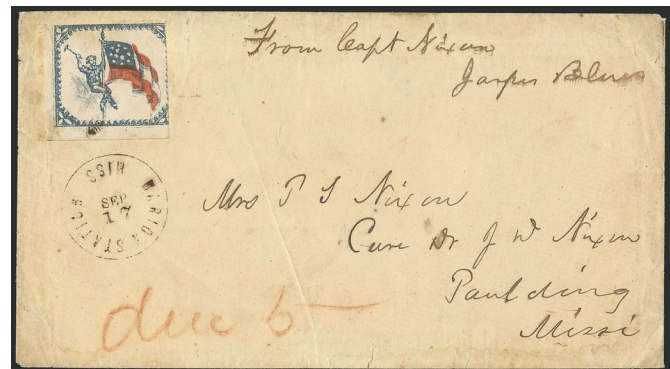 From Capt Nixon
Jasper Blues
MARION STATION MISS
SEP
17
Mrs P S Nixon
Care Dr J W Nixon
Paulding
Missi
due 5